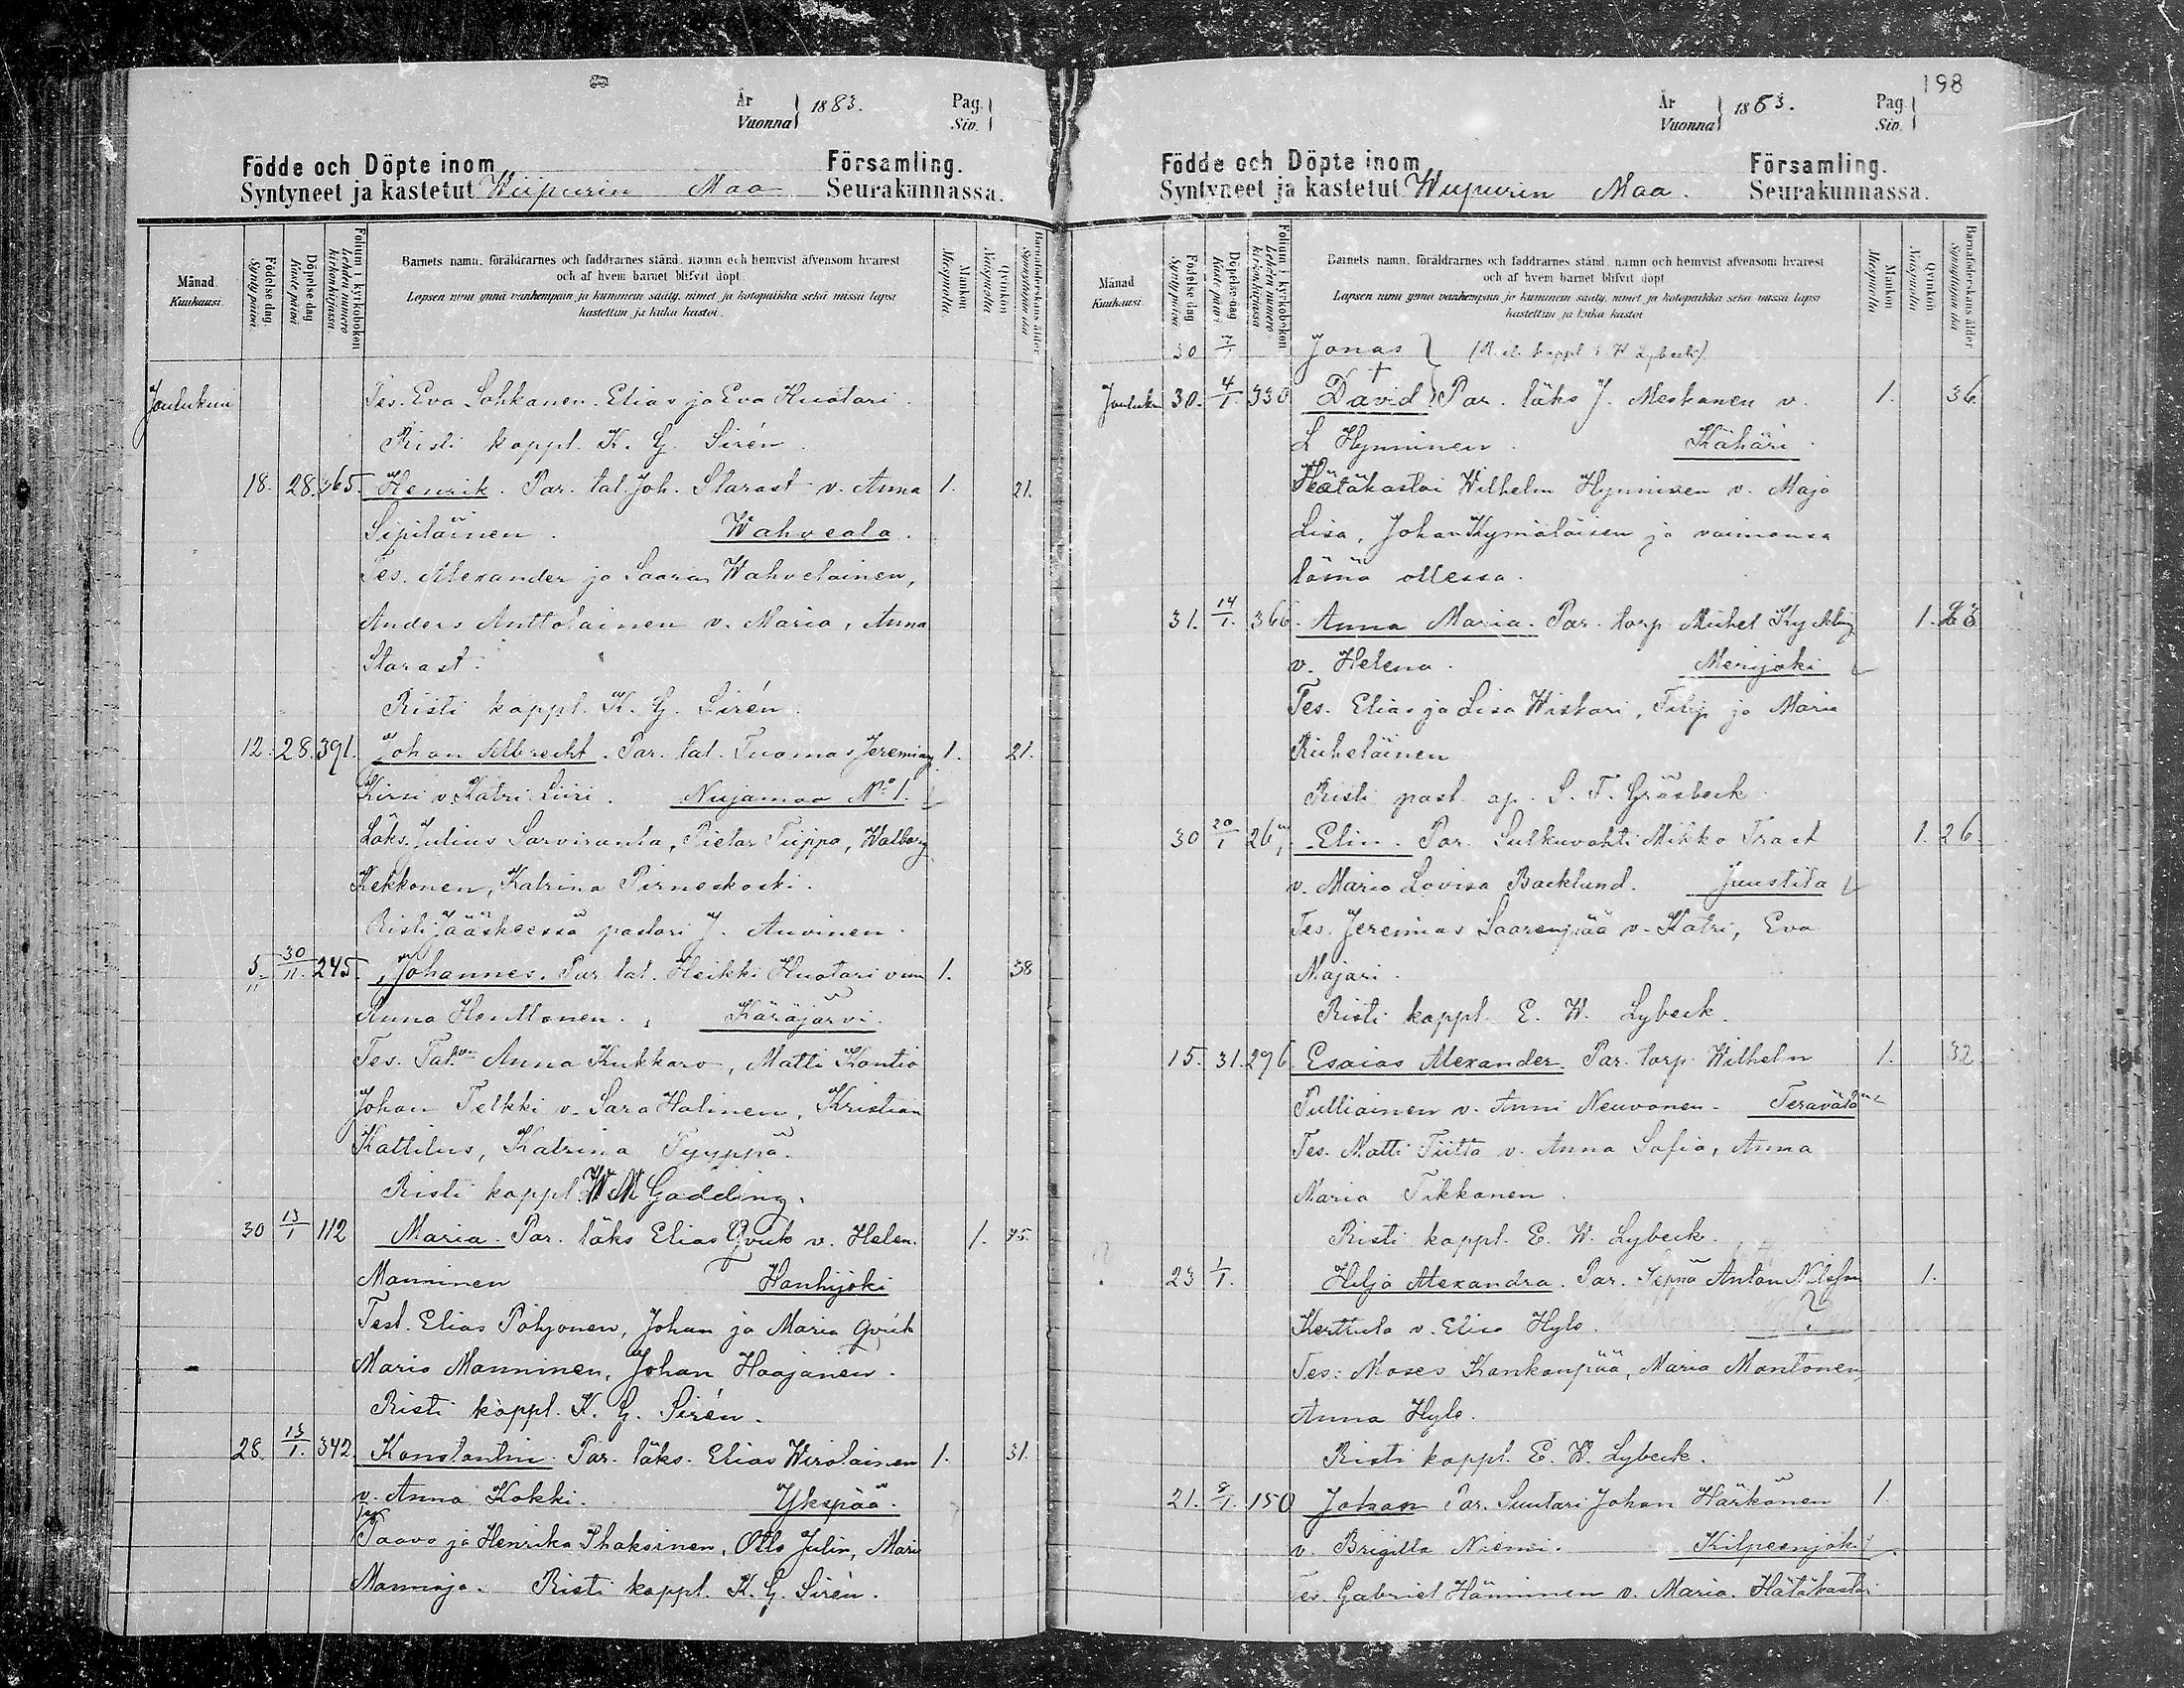 År
Vuonna } 1883. Pag.
Siv. }
Födde och Döpte inom Församling.
Syntyneet ja kastetut Wiipurin Maa Seurakunnassa.
Månad
Kuukausi.
Födelse dag
Syntypäivä
Döpelse dag
Kaste päivä
Folium i kyrkoboken
Lehden numero kirkonkirjassa
Barnets namn, föräldrarnes och faddrarnes stånd, namn och hemvist äfvensom hvarest
och af hvem barnet blifvit döpt.
Lapsen nimi ynnä vanhempain ja kummein sääty, nimet ja kotopaikka sekä missä lapsi
kastettiin ja kuka kastoi.
Mankön
Miespuolta
Qvinkön
Vaispuolta
Barnaföderskans ålder
Synnyttäjän ikä
Joulukuu Tes. Eva Lohkanen. Elias ja Eva Huotari.
Risti kappl. K. G. Sirén.
18. 28. 365. Henrik. Par. tal. Joh. Starast v. Anna 1. 21.
Sipiläinen. Wahveala.
Tes. Alexander ja Saara Wahvelainen,
Anders Anttolainen v. Maria, Anna
Starast.
Risti kappl. K. G. Sirén.
12. 28. 391. Johan Albrecht. Par. tal. Tuomas Jeremiasp. 1. 21.
Kirsi v. Katri Liiri. Nujamaa No 1.
Läks. Julius Sarviranta, Pietar Tiippa, Walborg
Kekkonen, Katrina Pirneskoski.
Risti Jääskeessä pastori J. Auvinen.
5/11 30/11. 245. Johannes. Par. tal. Heikki Huotari vm 1. 38
Anna Henttonen. Käräjärvi.
Tes. Tal. vr. Anna Kukkaro, Matti Kontio
Johan Telkki v. Sara Halinen, Kristian
Kattilus, Katrina Tyyppä.
Risti kappl W M Gadding.
30 13/1 112 Maria. Par. läks Elias Qvick v. Helen. 1. 45.
Manninen Hanhijoki
Test. Elias Pöhjonen, Johan ja Maria Qvick
Maria Manninen, Johan Haajanen.
Risti kappl. K. G. Sirén.
28. 13/1. 342. Konstantin. Par. läks. Elias Wirolainen 1. 31.
v. Anna Kokki. Ykspää.
Tes. Paavo ja Henrika Ihaksinen, Otto Julin, Mari
Mannoja. Risti kappl. K. G. Sirén.
198
År
Vuonna } 1883. Pag.
Siv. }
Födde och Döpte inom Församling.
Syntyneet ja kastetut Wiipurin Maa. Seurakunnassa.
Månad
Kuukausi.
Födelse dag
Syntypäivä
Döpelse dag
Kaste päivä
Folium i kyrkoboken
Lehden numero kirkonkirjassa
Barnets namn, föräldrarnes och faddrarnes stånd, namn och hemvist äfvensom hvarest
och af hvem barnet blifvit döpt
Lapsen nimi ynnä vanhempain ja kummein sääty, nimet ja kotopaikka sekä missä lapsi
kastettiin ja kuka kastoi
Mankön
Miespuolta
Qvinkön
Vaispuolta
Barnaföderskans ålder
Synnyttäjän ikä
30 7/1 Jonas } kappl E W Lybeck)
Jouluku 30. 4/1. 330 David † } Par. läks J. Meskanen v. 1. 36.
L Hynninen. Kähäri.
Hätäkastoi Wilhelm Hynninen v. Maja
Lisa, Johan Kymäläisen ja vaimonsa
läsnä ollessa.
31. 14/1. 366. Anna Maria. Par. torp. Michel Kyckling 1. 23
v. Helena. Merijoki
Tes. Elias ja Lisa Wiskari, Filip ja Maria
Riiheläinen
Risti past. ap. S. F. Gräsbeck.
30 20/1 267. Elin. Par. Sulkuvahti Mikko Trast 1. 26.
v. Maria Lovisa Backlund. Juustila
Tes. Jeremias Saarenpää v. Katri, Eva
Majari.
Risti kappl. E. W. Lybeck.
15. 31. 296. Esaias Alexander. Par. torp. Wilhelm 1. 32
Pulliainen v. Anni Neuvonen. Terävälä
Tes. Matti Tiitta v. Anna Sofia, Anna
Maria Tikkanen.
Risti kappl. E. W. Lybeck.
? 23 1/1. Hilja Alexandra. Par. Seppä Anton Nilsson 1.
Kerttula v. Elisa Hyle. ?
Tes: Moses Kankanpää, Maria Montonen,
Anna Hyle.
Risti kappl. E. W. Lybeck.
21. 8/1. 150 Johan Par. Suutari Johan Härkönen 1.
v. Brigitta Niemi. Kilpeenjoki
Tes. Gabriel Hänninen v. Maria. Hätäkastoi